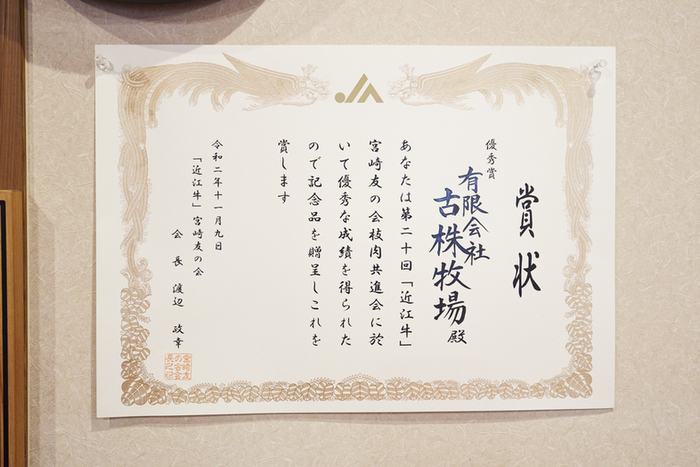 賞状
優秀賞
有限会社
古株牧場殿
あなたは第二十回「近江牛」
宮崎友の会枝肉共進会に於
いて優秀な成績を得られた
ので記念品を贈呈しこれを
賞します
令和二年十一月九日
「近江牛」宮崎友の会
会長 渡辺 政幸